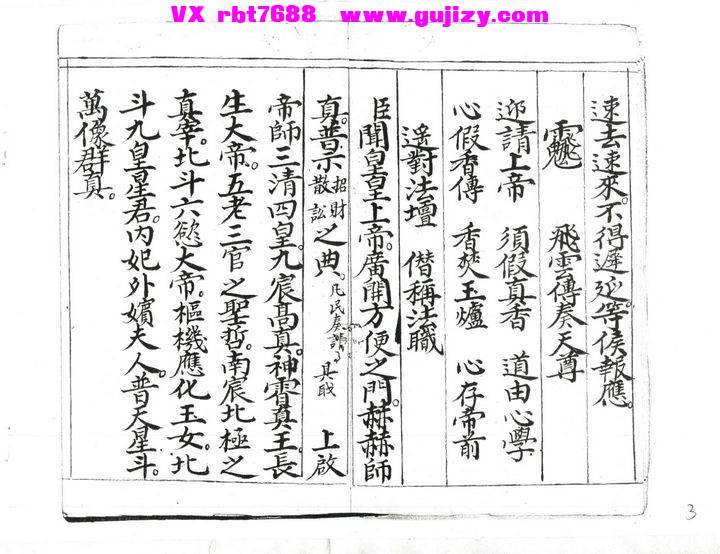 VX rbt7688 www.gujizy.com
速去速來。不得遲延。等侯報應。
飛雲傳奏天尊
迎請上帝 須假真香 道由心學
心假香傳 香焚玉爐 心存帝前
遥對法壇 僭稱法職
臣聞皇皇上帝。廣開方便之門。赫赫師
真。普示招財散訟之典。凡民奏請 具職 上啟
帝師三清四皇。九宸高真。神霄真王。長
生大帝。五老三官之聖哲。南宸北極之
真宰。北斗六慾大帝。樞機應化玉女。北
斗九皇星君。内妃外嬪夫人。普天星斗。
萬像群真。
3